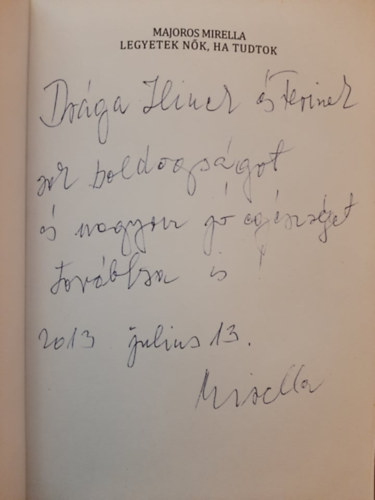 MAJOROS MIRELLA
LEGYETEK NŐK, HA TUDTOK
Drága Ilinek és Ferinek
sok boldogságot
és nagyon jó egészséget
továbbra is!
2013 július 13.
Mirella